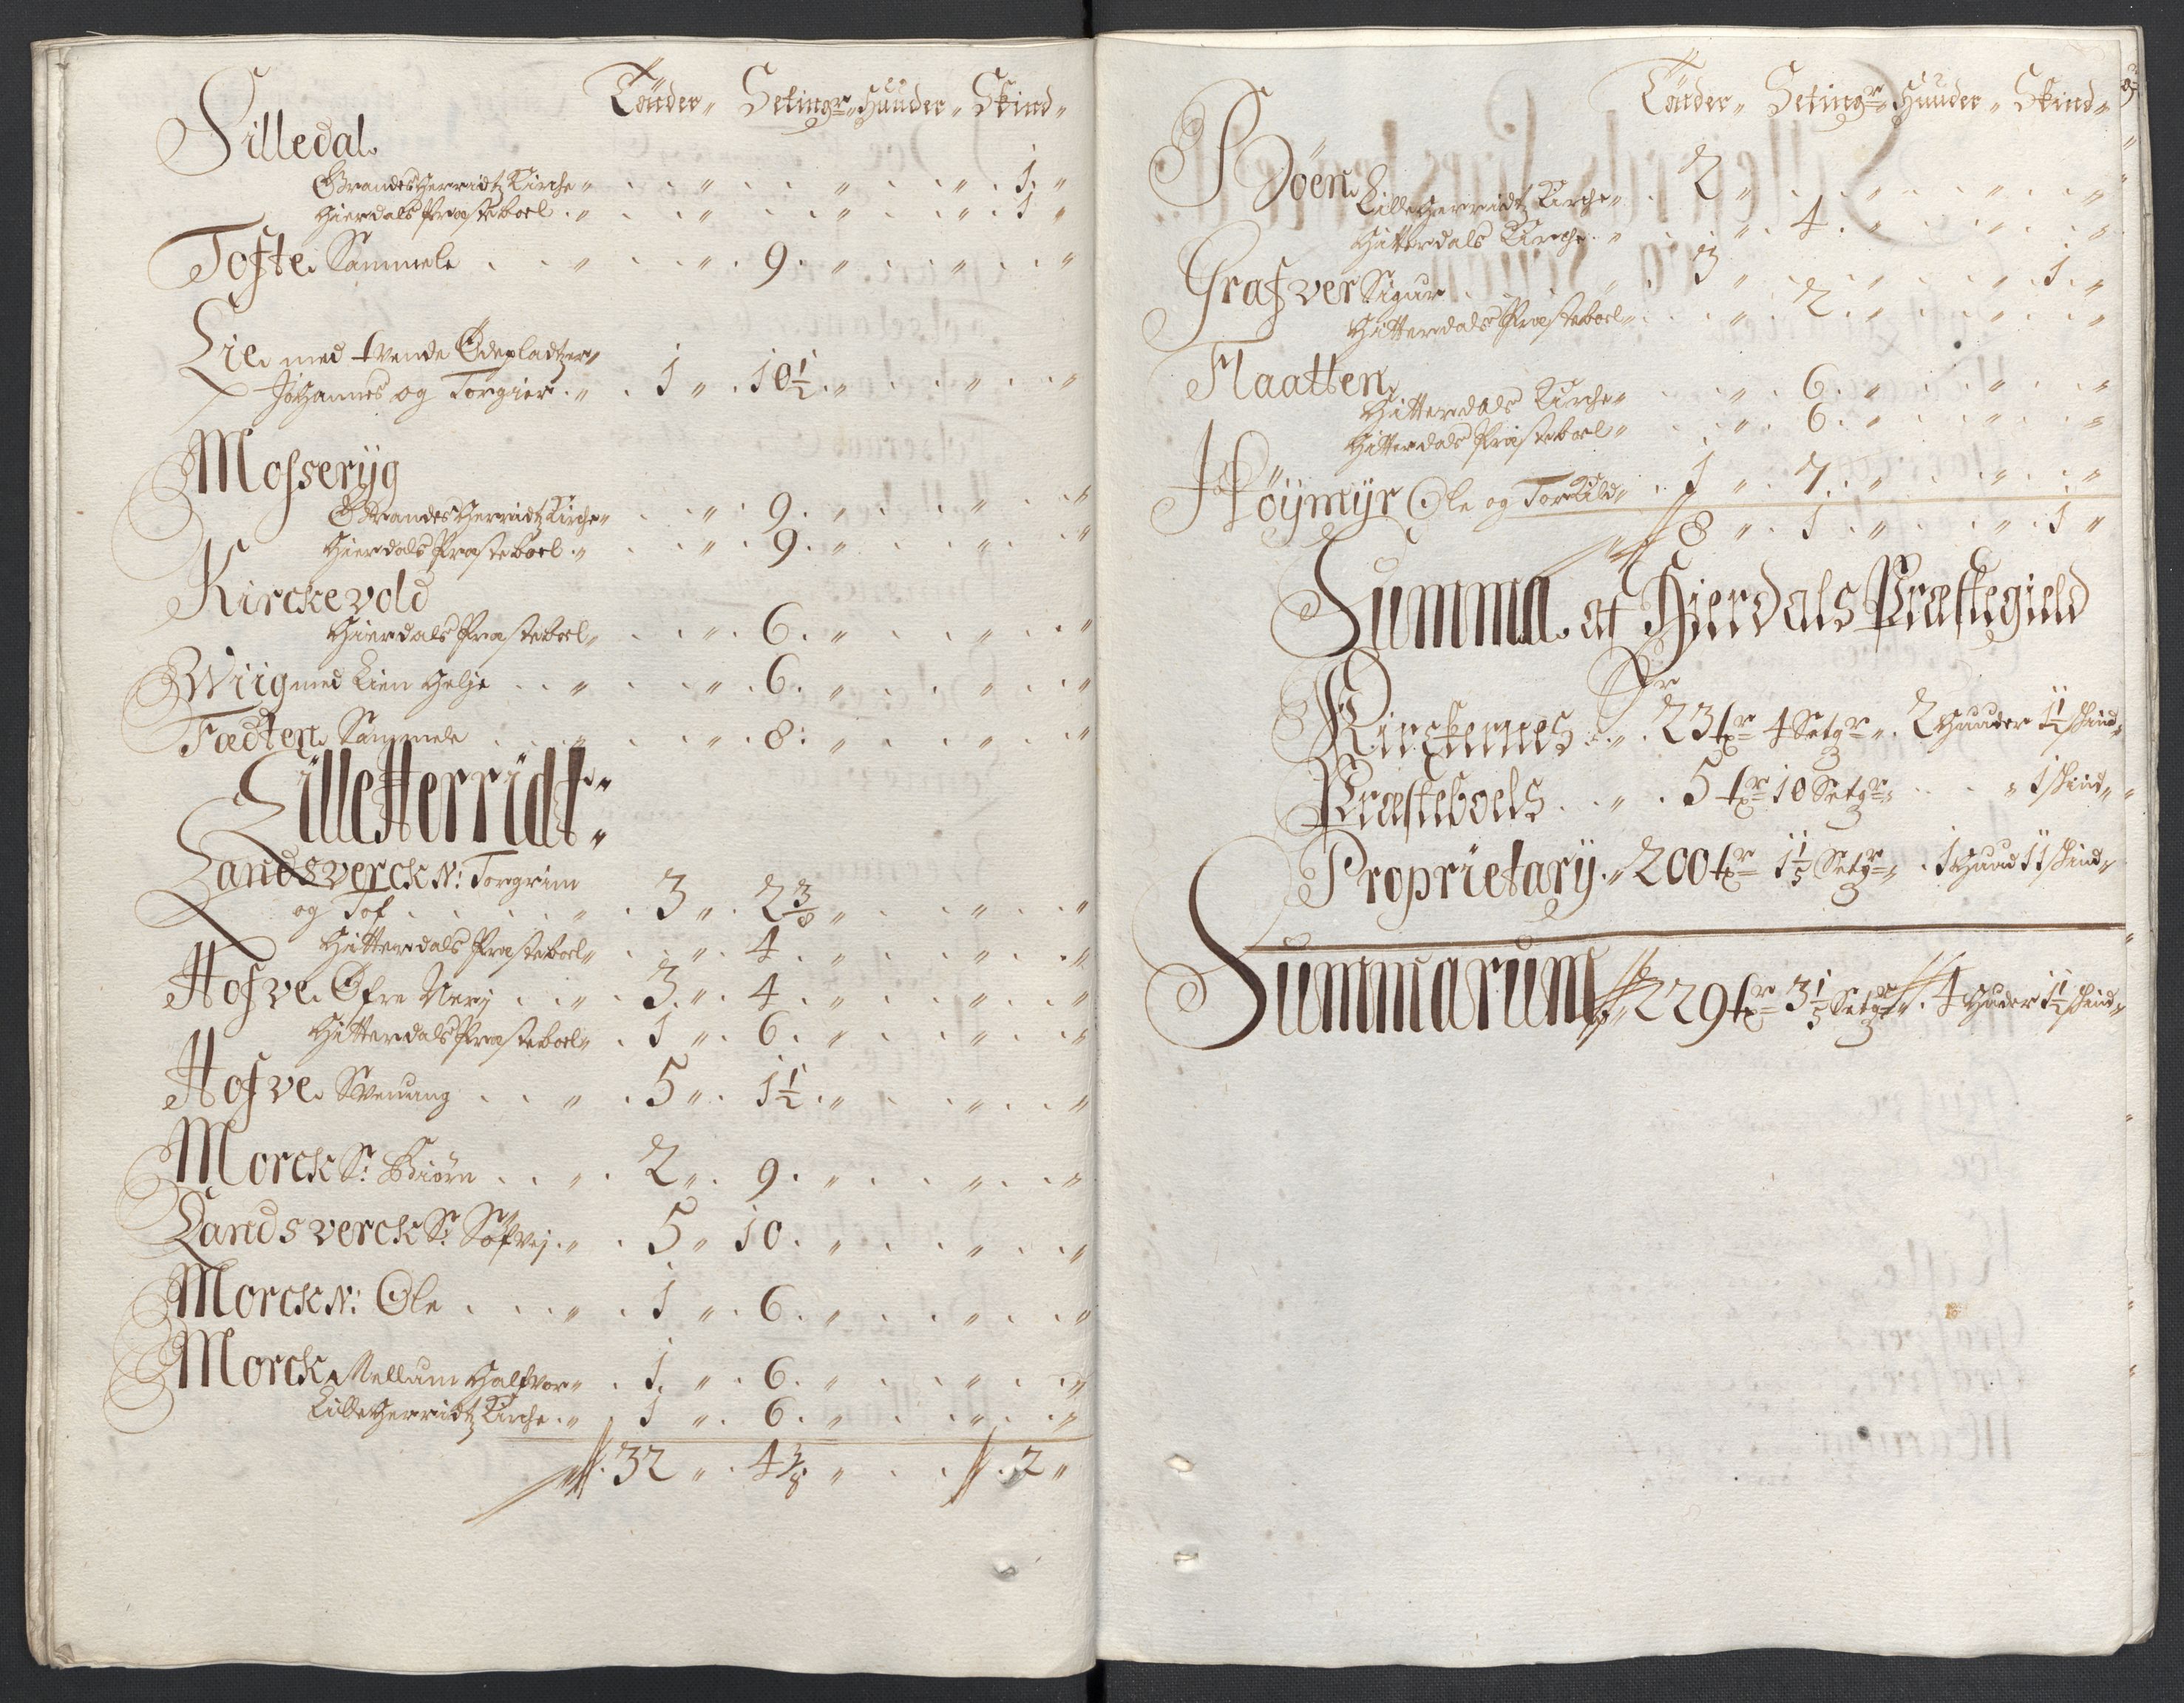 Tönder„ Setingr„ Huuder„ Skind„
Silledal.
Brandesherridtz Kirche „ . . „ . . „ . . „ . 1 „
Hierdals Præsteboel . „ . . „ . . „ . . „ . 1 „
Tofte. Sammele . . „ . . „ . 9. „ . . „ . . „
Lie. med tvende Ødepladtzer„
Johannes og Torgier . „ . 1 „ . 10½ . „ . . „ . . „
Mosserÿg
Brandesherridtz Kirche„ . . „ . 9. „ . . „ . . „
Hierdals Præsteboel . „ . . „ . 9. „ . . „ . . „
Kirckevold
Hierdals Præsteboel„ . . „ . 6. „ . . „ . . „
Wiig med Lien Helje . . „ . . „ . 6. „ . . „ . . „
Fædten. Sammele . . „ . . „ . 8. „ . . „ . . „
LilleHerridt:
Landsverck N: Torgrim
og Tof . . . . „ . 3 „ . 2 3/8 „ . . „ . . „
Hitterdals Præsteboel„ . . „ . 4 . „ . . „ . . „
Hofve. Øfre Nerj . . „ . 3. „ . 4 . „ . . „ . . „
Hitterdals Præsteboel„ . 1 „ . 6. „ . . „ . . „
Hofve. Svenung . . „ . 5 „ . 1½ . „ . . „ . . „
Morck S: Biörn . . „ . 2 „ . 9. „ . . „ . . „
Landsverck S: Söfvej . „ . 5 „ 10. „ . . „ . . „
Morck N: Ole . . . „ . 1 „ . 6. „ . . „ . . „
Morck Mellum Halfvor„ . 1. „ . 6. „ . . „ . . „
Lilleherridtz Kirche . „ . 1 „ . 6. „ . . „ . . „
32 „ . 4 3/8 „ . . 2 „
Tönder„ Setingr„ Huuder„ Skind„
Böen.
Lilleherridtz Kirche„ . 2 „ . . „ . . „ . . „
Hitterdals Kirche . „ . . „ . 4. „ . . „ . . „
Grafver Sigur . . . „ . 3 „ . . „ . . „ . 1. „
Hitterdals Præsteboel„ . . „ . 2. „ . . „ . . „
Flaatten.
Hitterdals Kirche„ . . „ . 6. „ . . „ . . „
Hitterdals Præsteboel„ . . „ . 6. „ . . „ . . „
Höÿmÿr Ole og Torkild„ . 1 „ . 7. „ . . „ . . „
8 „ . 1 . „ . . „ . 1 „
Summa. af Hierdals Præstegield
Kirckernes . „ . 23 tr 4 Setgr „ . 2 Huuder 1½ skind„
Præsteboels . . „ . 5 tr 10 Setgr „ . . „ 1 skind„
Proprietarÿ . „ 200 tr 1 1/5 Setgr „ . 1 Huud 11 skind„
Summarum „ 229 tr 3 1/5 Setgr „ . 4 Huder 1½ skind„